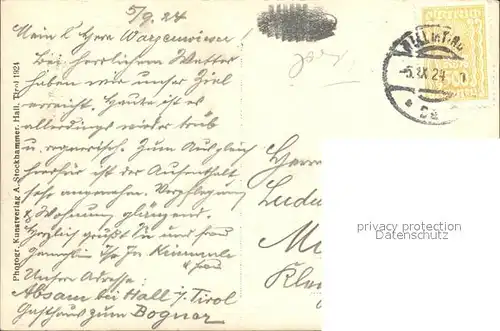 5/9. 24
Mein l. Herr Warzenwieser!
Bei herrlichem Wetter
haben wir unser Ziel
erreicht. Heute ist es
allerdings wieder trüb
u. regnerisch. Zum Ausgleich
hierfür ist der Aufenthalt
sehr angenehm. Verpflegung
& Wohnung glänzend.
Herzlich grüßt Sie und Frau
Gemahlin Ihr
u Frau
Unsere Adresse:
Absam bei Hall i/ Tirol
Gasthaus zum Bogner
Photogr. Kunstverlag A. Stockhammer, Hall, Tirol 1924
HALL in TIROL
-5.IX.24
Herrn
Ludw
privacy protection
Datenschutz